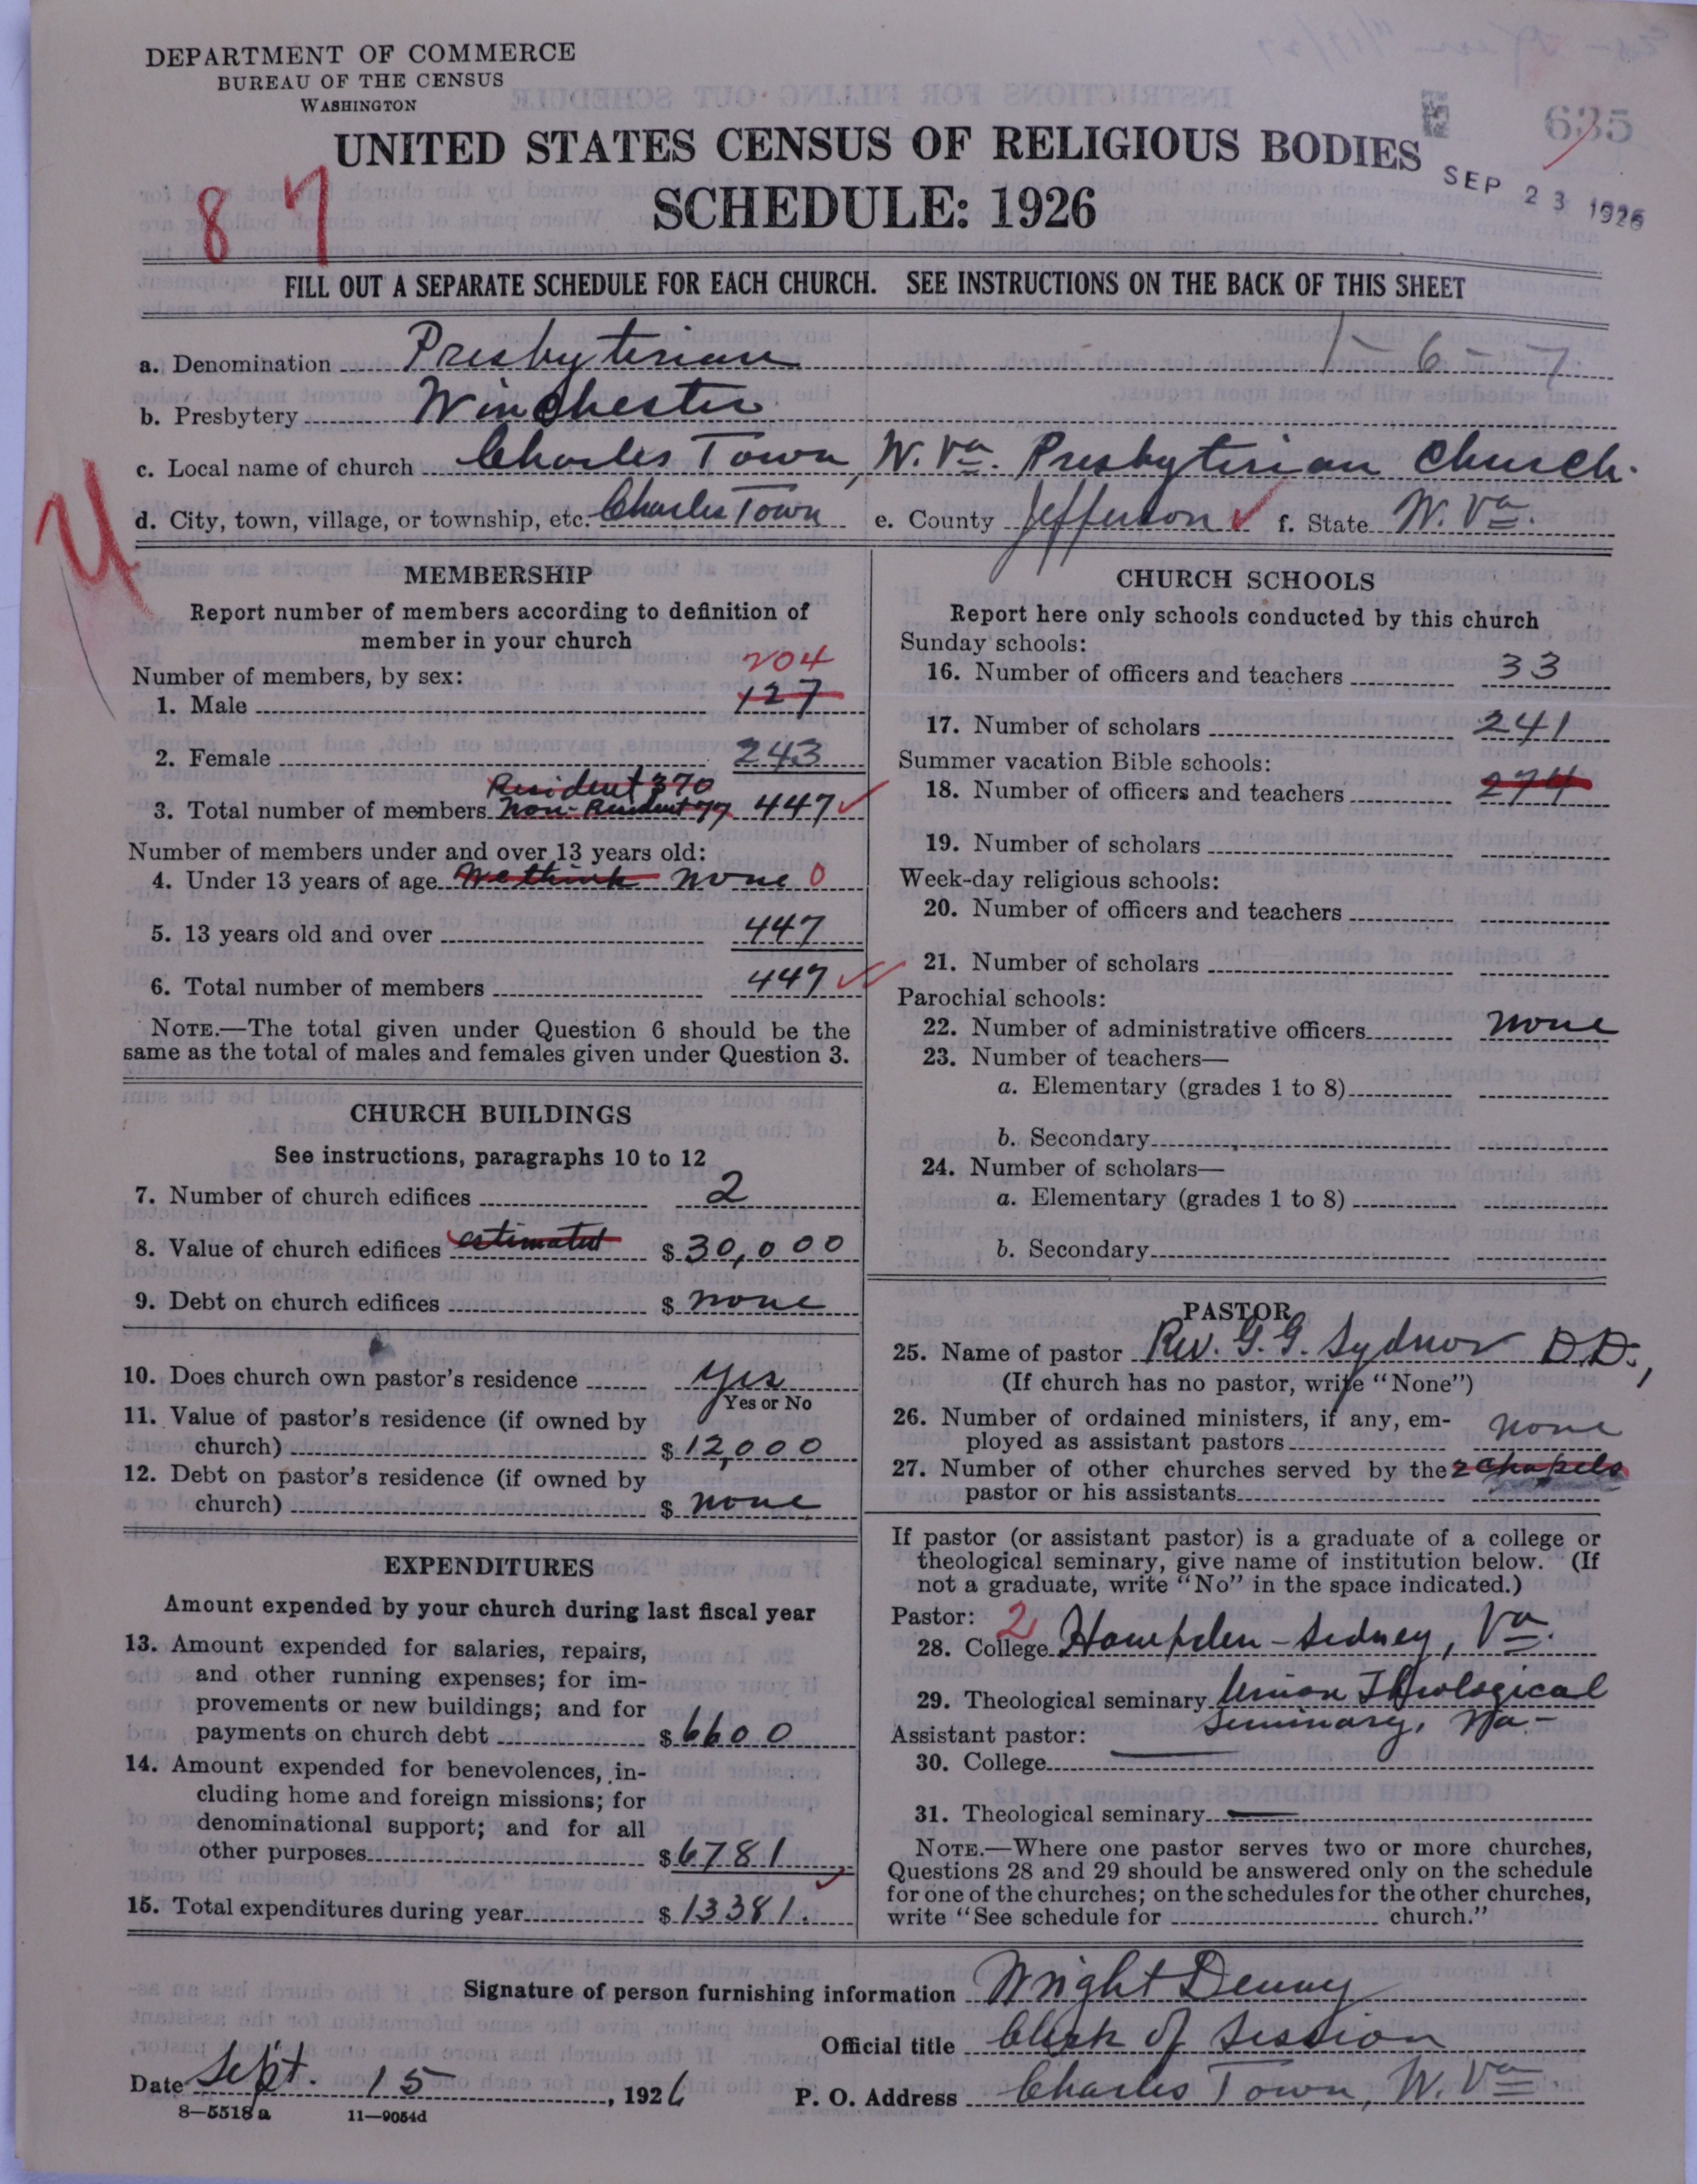 DEPARTMENT OF COMMERCE
BUREAU OF THE CENSUS
WASHINGTON
UNITED STATES CENSUS OF RELIGIOUS BODIES
SCHEDULE: 1926
635
SEP 23 1926
87
FILL OUT A SEPARATE SCHEDULE FOR EACH CHURCH. SEE INSTRUCTIONS ON THE BACK OF THIS SHEET
a. Denomination Presbyterian 1-6-7
b. Presbytery Winchester
c. Local name of church Charles Town, W. Va. Presbyterian Church.
d. City, town, village, or township, etc. Charles Town e. County Jefferson f. State W. Va.
MEMBERSHIP
Report number of members according to definition of
member in your church
Number of members, by sex:
204
1. Male 127
2. Female 243
Resident 370
3. Total number of members Non-Resident 77 447
Number of members under and over 13 years old:
4. Under 13 years of age We think none 0
5. 13 years old and over 447
6. Total number of members 447
NOTE.—The total given under Question 6 should be the
same as the total of males and females given under Question 3.
CHURCH BUILDINGS
See instructions, paragraphs 10 to 12
7. Number of church edifices 2
8. Value of church edifices estimated $ 30,000
9. Debt on church edifices $ none
10. Does church own pastor's residence yes
Yes or No
11. Value of pastor's residence (if owned by
church) $ 12,000
12. Debt on pastor's residence (if owned by
church) $ none
EXPENDITURES
Amount expended by your church during last fiscal year
13. Amount expended for salaries, repairs,
and other running expenses; for im-
provements or new buildings; and for
payments on church debt $ 6600
14. Amount expended for benevolences, in-
cluding home and foreign missions; for
denominational support; and for all
other purposes $ 6781
15. Total expenditures during year $ 13381.
CHURCH SCHOOLS
Report here only schools conducted by this church
Sunday schools:
16. Number of officers and teachers 33
17. Number of scholars 241
Summer vacation Bible schools:
18. Number of officers and teachers 274
19. Number of scholars
Week-day religious schools:
20. Number of officers and teachers
21. Number of scholars
Parochial schools:
22. Number of administrative officers none
23. Number of teachers—
a. Elementary (grades 1 to 8)
b. Secondary
24. Number of scholars—
a. Elementary (grades 1 to 8)
b. Secondary
PASTOR
25. Name of pastor Rev. G. G. Sydnor D.D.,
(If church has no pastor, write "None")
26. Number of ordained ministers, if any, em-
ployed as assistant pastors none
27. Number of other churches served by the 2 chapels
pastor or his assistants
If pastor (or assistant pastor) is a graduate of a college or
theological seminary, give name of institution below. (If
not a graduate, write "No" in the space indicated.)
Pastor: 2
28. College Hampden-Sidney, Va.
29. Theological seminary Union Theological
Seminary, Va-
Assistant pastor:
30. College
31. Theological seminary
NOTE.—Where one pastor serves two or more churches,
Questions 28 and 29 should be answered only on the schedule
for one of the churches; on the schedules for the other churches,
write "See schedule for church."
Signature of person furnishing information Wright Denny
Official title Clerk of Session
Date Sept. 15, 1926 P. O. Address Charles Town, W. Va.
8—5518a 11—9054d